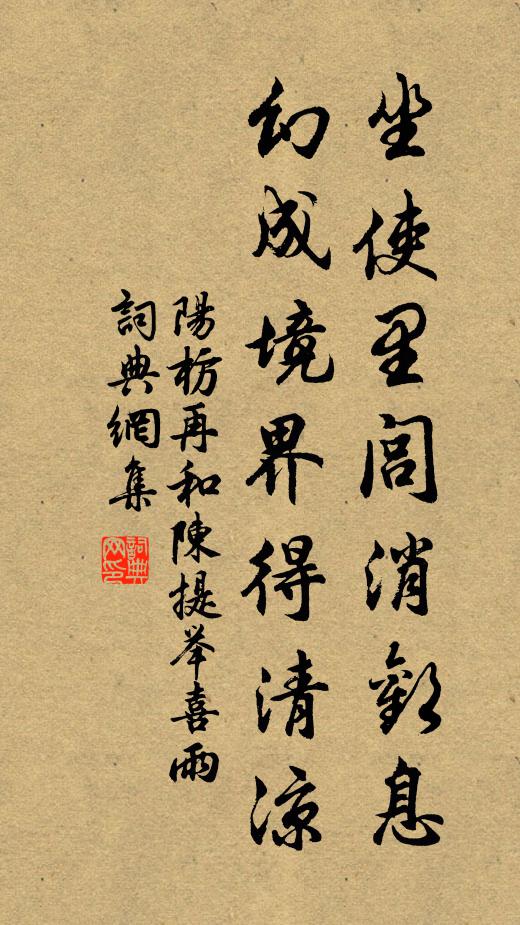 坐使里閭消歎息
幻成境界得清涼
陽枋再和陳提举喜雨
詞典網集
詞典网印